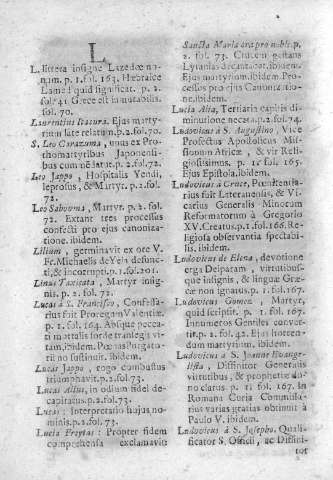 L
L. littera insigne Lazedoe no-
nam. p. 1. fol. 163. Hebraice
Lamed quid significat. p. 2.
fol. 41 Græce est in mutabilis.
fol. 70.
Laurentius Razura. Ejus marty-
rium late relatum. p. 2. fol. 70.
S. Leo Carazuma, unus ex Pro-
thomartyribus Japonensi-
bus cum ne dat. p. 2. fol. 72.
Leo Jappo, Hospitalis Yendi,
leprosus, & Martyr. p. 2. fol.
72.
Leo Saboouna, Martyr. p. 2. fol.
72. Extant tres processus
confecti pro ejus canoniza-
tione. ibidem.
Lilium, germinavit ex ore V.
Fr. Michaelis de Yela defunc-
ti, & incorrupti. p. 1. fol. 201.
Linus Taxicata, Martyr insig-
nis. p. 2. fol. 72.
Lucas à S. Francisco, Confessa-
rius fuit Proregum Valentiæ.
p. 1. fol. 164. Absque pecca-
ti mortalis sorde transegit vi-
tam. ibidem. Pœnas Purgato-
rii no sustinuit. ibidem.
Lucas Jappo, rogo combustus
triumphavit. p. 2. fol. 73.
Lucas Alius, in odium fidei de-
capitatus. p. 2. fol. 73.
Lucas: Interpretatio hujus no-
minis. p. 2. fol. 73.
Lucia Freytas: Propter fidem
comprehensa exclamavio
Sancta Maria ora pro nobis. p.
2. fol. 73. Crucem gestans
Lytanias decantabat. ibidem.
Ejus martyrium. ibidem. Pro-
cessus pro ejus Canonizatio-
ne. ibidem.
Lucia Alia, Tertiaria capitis di-
minutione necata. p. 2. fol. 74.
Ludovicus à S. Augustino, Vice
Præfectus Apostolicus Mis-
sionum Africæ, & vir Reli-
giosissimus. p. 1. fol. 165.
Ejus Epistola. ibidem.
Ludovicus à Cruce, Pœnitentia-
rius fuit Lateranensis, & Vi-
carius Generalis Minorum
Reformatorum à Gregorio
XV. Creatus. p. 1. fol. 166. Re-
ligiosa observantia spectabi-
lis. ibidem.
Ludovicus de Elena, devotione
erga Deiparam, virtutibus-
que insignis, & linguæ Græ-
cæ non ignarus. p. 1. fol. 167.
Ludovicus Gomez, Martyr,
quid scripsit. p. 1. fol. 167.
Innumeros Gentiles conver-
tit. p. 2. fol. 42. Ejus horren-
dum martyrium. ibidem.
Ludovicus à S. Joanne Evange-
lista, Diffinitor Generalis
virtutibus, & prophetiæ do-
no clarus p. 1. fol. 167. In
Romana Curia Commissa-
rius varias gratias obtinuit à
Paulo V. ibidem.
Ludovicus à S. Josepho. Quali-
ficator S. Officii, ac Diffini-
tor